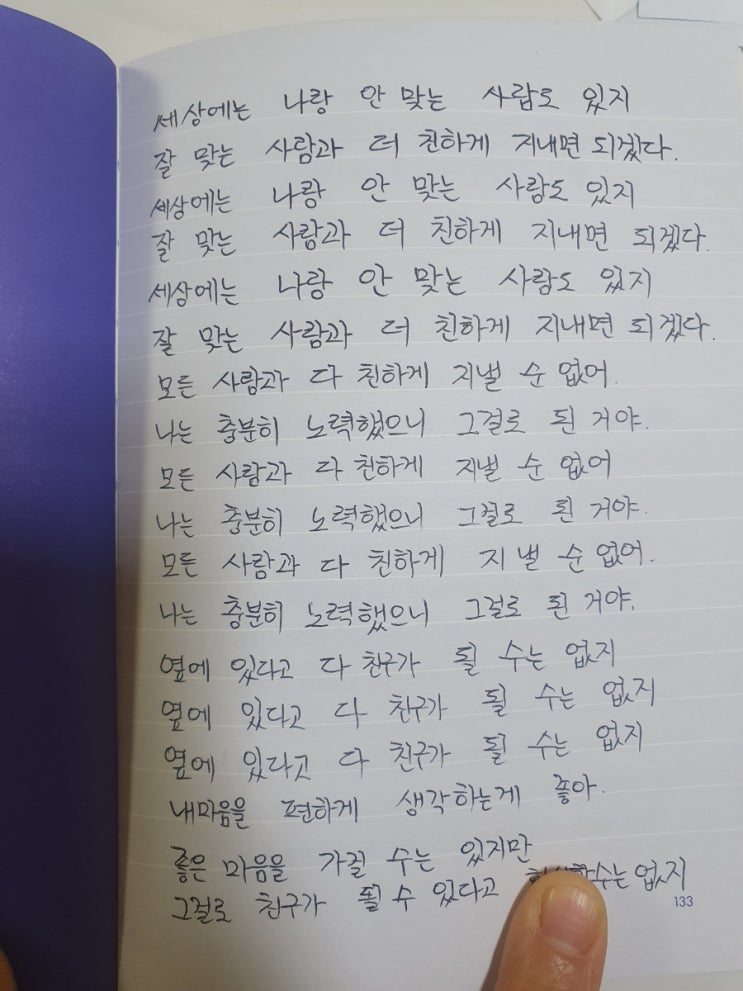 세상에는 나랑 안 맞는 사람도 있지
잘 맞는 사람과 더 친하게 지내면 되겠다.
세상에는 나랑 안 맞는 사람도 있지
잘 맞는 사람과 더 친하게 지내면 되겠다.
세상에는 나랑 안 맞는 사람도 있지
잘 맞는 사람과 더 친하게 지내면 되겠다.
모든 사람과 다 친하게 지낼 순 없어.
나는 충분히 노력했으니 그걸로 된 거야.
모든 사람과 다 친하게 지낼 순 없어
나는 충분히 노력했으니 그걸로 된 거야.
모든 사람과 다 친하게 지낼 순 없어.
나는 충분히 노력했으니 그걸로 된 거야.
옆에 있다고 다 친구가 될 수는 없지
옆에 있다고 다 친구가 될 수는 없지
옆에 있다고 다 친구가 될 수는 없지
내마음을 편하게 생각하는게 좋아.
좋은 마음을 가질 수는 있지만
그걸로 친구가 될 수 있다고 수는 없지
133